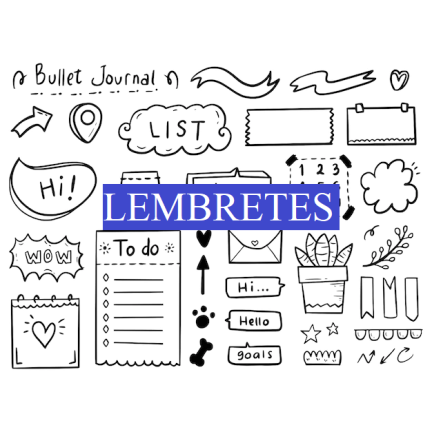 Bullet Journal
LIST
Hi!
1 2 3
LEMBRETES
WOW
To do
Hi...
Hello
goals